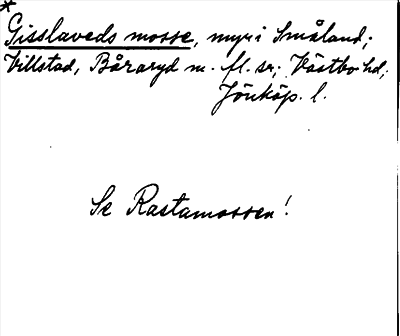 *
Gisslaveds mosse, myr i Småland;
Villstad, Båraryd m. fl. sr; Västbo hd;
Jönköp. l.
Se Rastamossen!